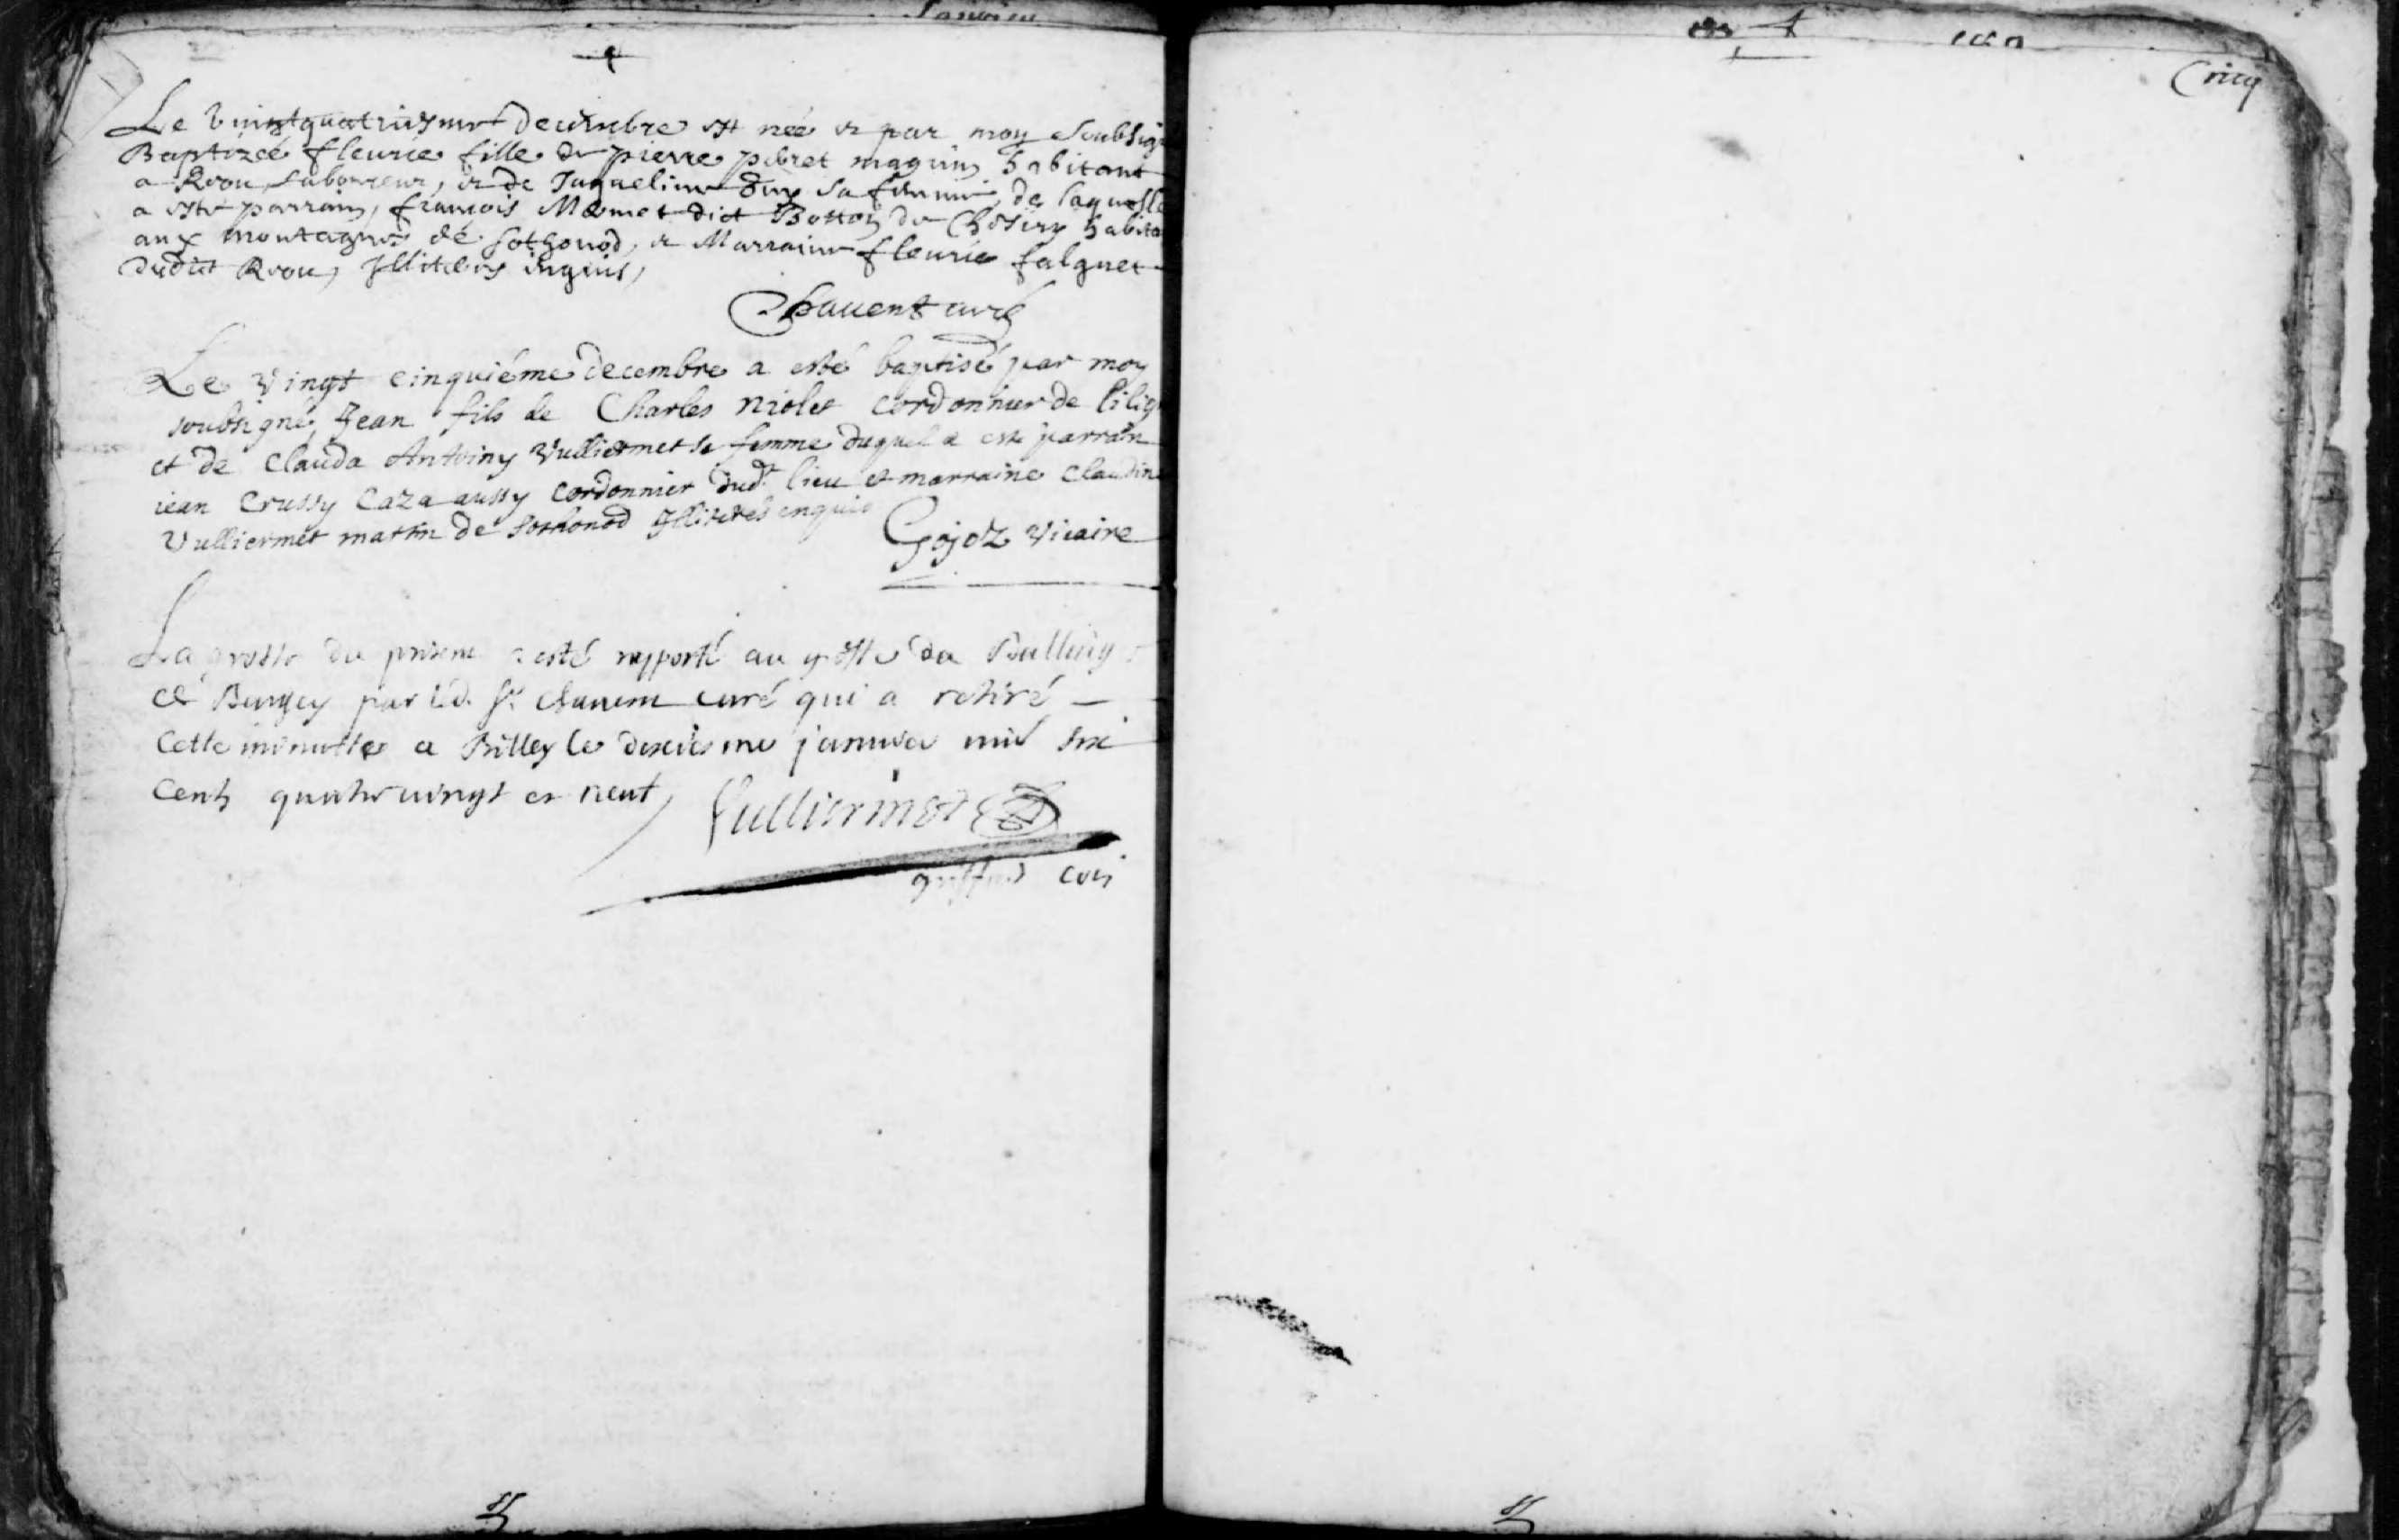 Le vuintquatriesme decembre est née et par moy soubsig
Baptizéé fleurie fille de pierre pebret maguin habitant
a Rvou, laboureur, et de Jaqueline sa femme, de laquelle
a este parrain, francois Mermet dict Botton de habita
aux montagnes dé sothonod, et Marraine fleurie falquet
dudict Rvou, Illiteres enquis,
Chavent curé
Le vingt cinquiéme decembre a esté baptisé par moy
soubsigné, Jean fils de Charles niolet cordonnier de lilig
et de Clauda Antoiny Vulliermet sa femme duquel a esté parrain
iean Crussy Caza aussy cordonnier dud. lieu et marraine claudine
Vulliermet de sothonod Illiteres enquis
Gojoz vicaire
La grosse du present a esté rapporté au greffe du Balliag
de Bugey par led. Sr. Chavent curé qui a retiré
Cette minutte a Belley le dixiesme januier mil six
Cents quatre vingt et neuf,
Vulliermet
greffier